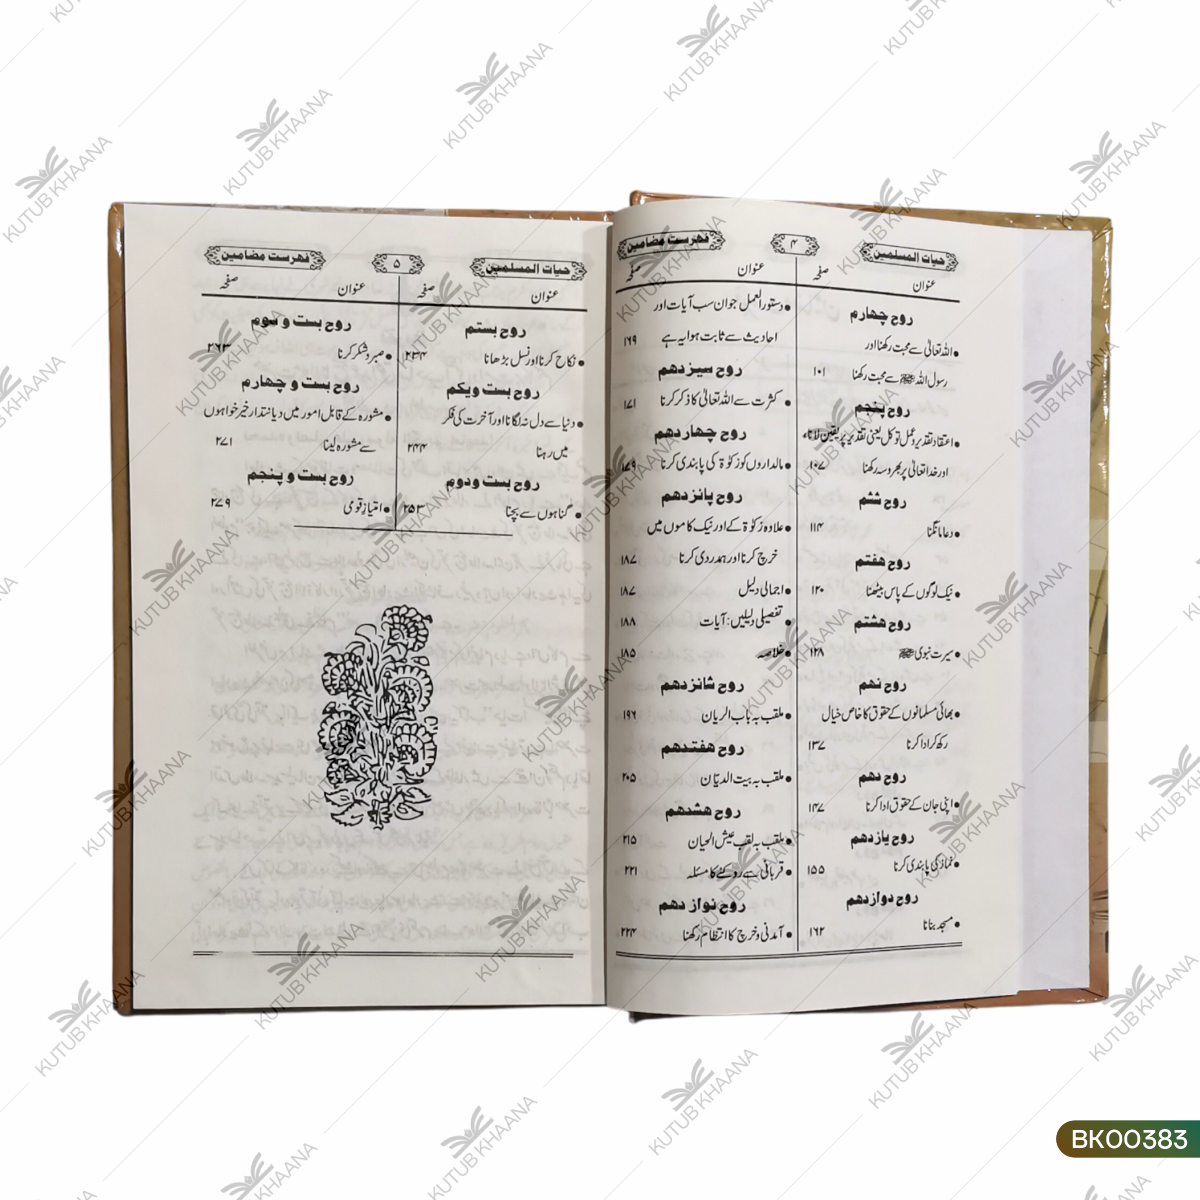 حیات المسلمین
۴
فہرست مضامین
عنوان
صفحہ
روح چہارم
اللہ تعالیٰ سے محبت رکھنا اور
رسول اللہ ﷺ سے محبت رکھنا ۱۰۱
روح پنجم
اعتقاد تقدیر و عمل توکل یعنی تقدیر پر یقین لانا
اور خدا تعالیٰ پر بھروسہ رکھنا ۱۰۷
روح ششم
دعا مانگنا ۱۱۴
روح ہفتم
نیک لوگوں کے پاس بیٹھنا ۱۲۰
روح ہشتم
سیرت نبوی ﷺ ۱۲۸
روح نہم
بھائی مسلمانوں کے حقوق کا خاص خیال
رکھ کر ادا کرنا ۱۳۷
روح دہم
اپنی جان کے حقوق ادا کرنا ۱۴۷
روح یازدہم
نماز کی پابندی کرنا ۱۵۵
روح دوازدہم
مسجد بنانا ۱۶۲
عنوان
صفحہ
دستور العمل جو ان سب آیات اور
احادیث سے ثابت ہوا یہ ہے ۱۶۹
روح سیزدہم
کثرت سے اللہ تعالیٰ کا ذکر کرنا ۱۷۱
روح چہاردہم
مالداروں کو زکوٰۃ کی پابندی کرنا ۱۷۹
روح پانزدہم
علاوہ زکوٰۃ کے اور نیک کاموں میں
خرچ کرنا اور ہمدردی کرنا ۱۸۷
اجمالی دلیل ۱۸۷
تفصیلی دلیلیں: آیات ۱۸۸
خلاصہ ۱۸۵
روح شانزدہم
ملقب بہ باب الریان ۱۹۶
روح ہفتدہم
ملقب بہ بیت الدیّان ۲۰۵
روح ہشدہم
ملقب بہ لقب عیش الحیان ۲۱۵
قربانی سے روکنے کا مسئلہ ۲۲۱
روح نوازدہم
آمدنی و خرچ کا انتظام رکھنا ۲۲۴
حیات المسلمین
۵
فہرست مضامین
عنوان
صفحہ
روح بستم
نکاح کرنا اور نسل بڑھانا ۲۳۴
روح بست ویکم
دنیا سے دل نہ لگانا اور آخرت کی فکر
میں رہنا ۲۴۴
روح بست ودوم
گناہوں سے بچنا ۲۵۳
عنوان
صفحہ
روح بست و سوم
صبر و شکر کرنا ۲۶۳
روح بست و چہارم
مشورہ کے قابل امور میں دیانتدار خیر خواہوں
سے مشورہ لینا ۲۷۱
روح بست و پنجم
امتیاز قومی ۲۷۹
KUTUB KHAANA
BK00383